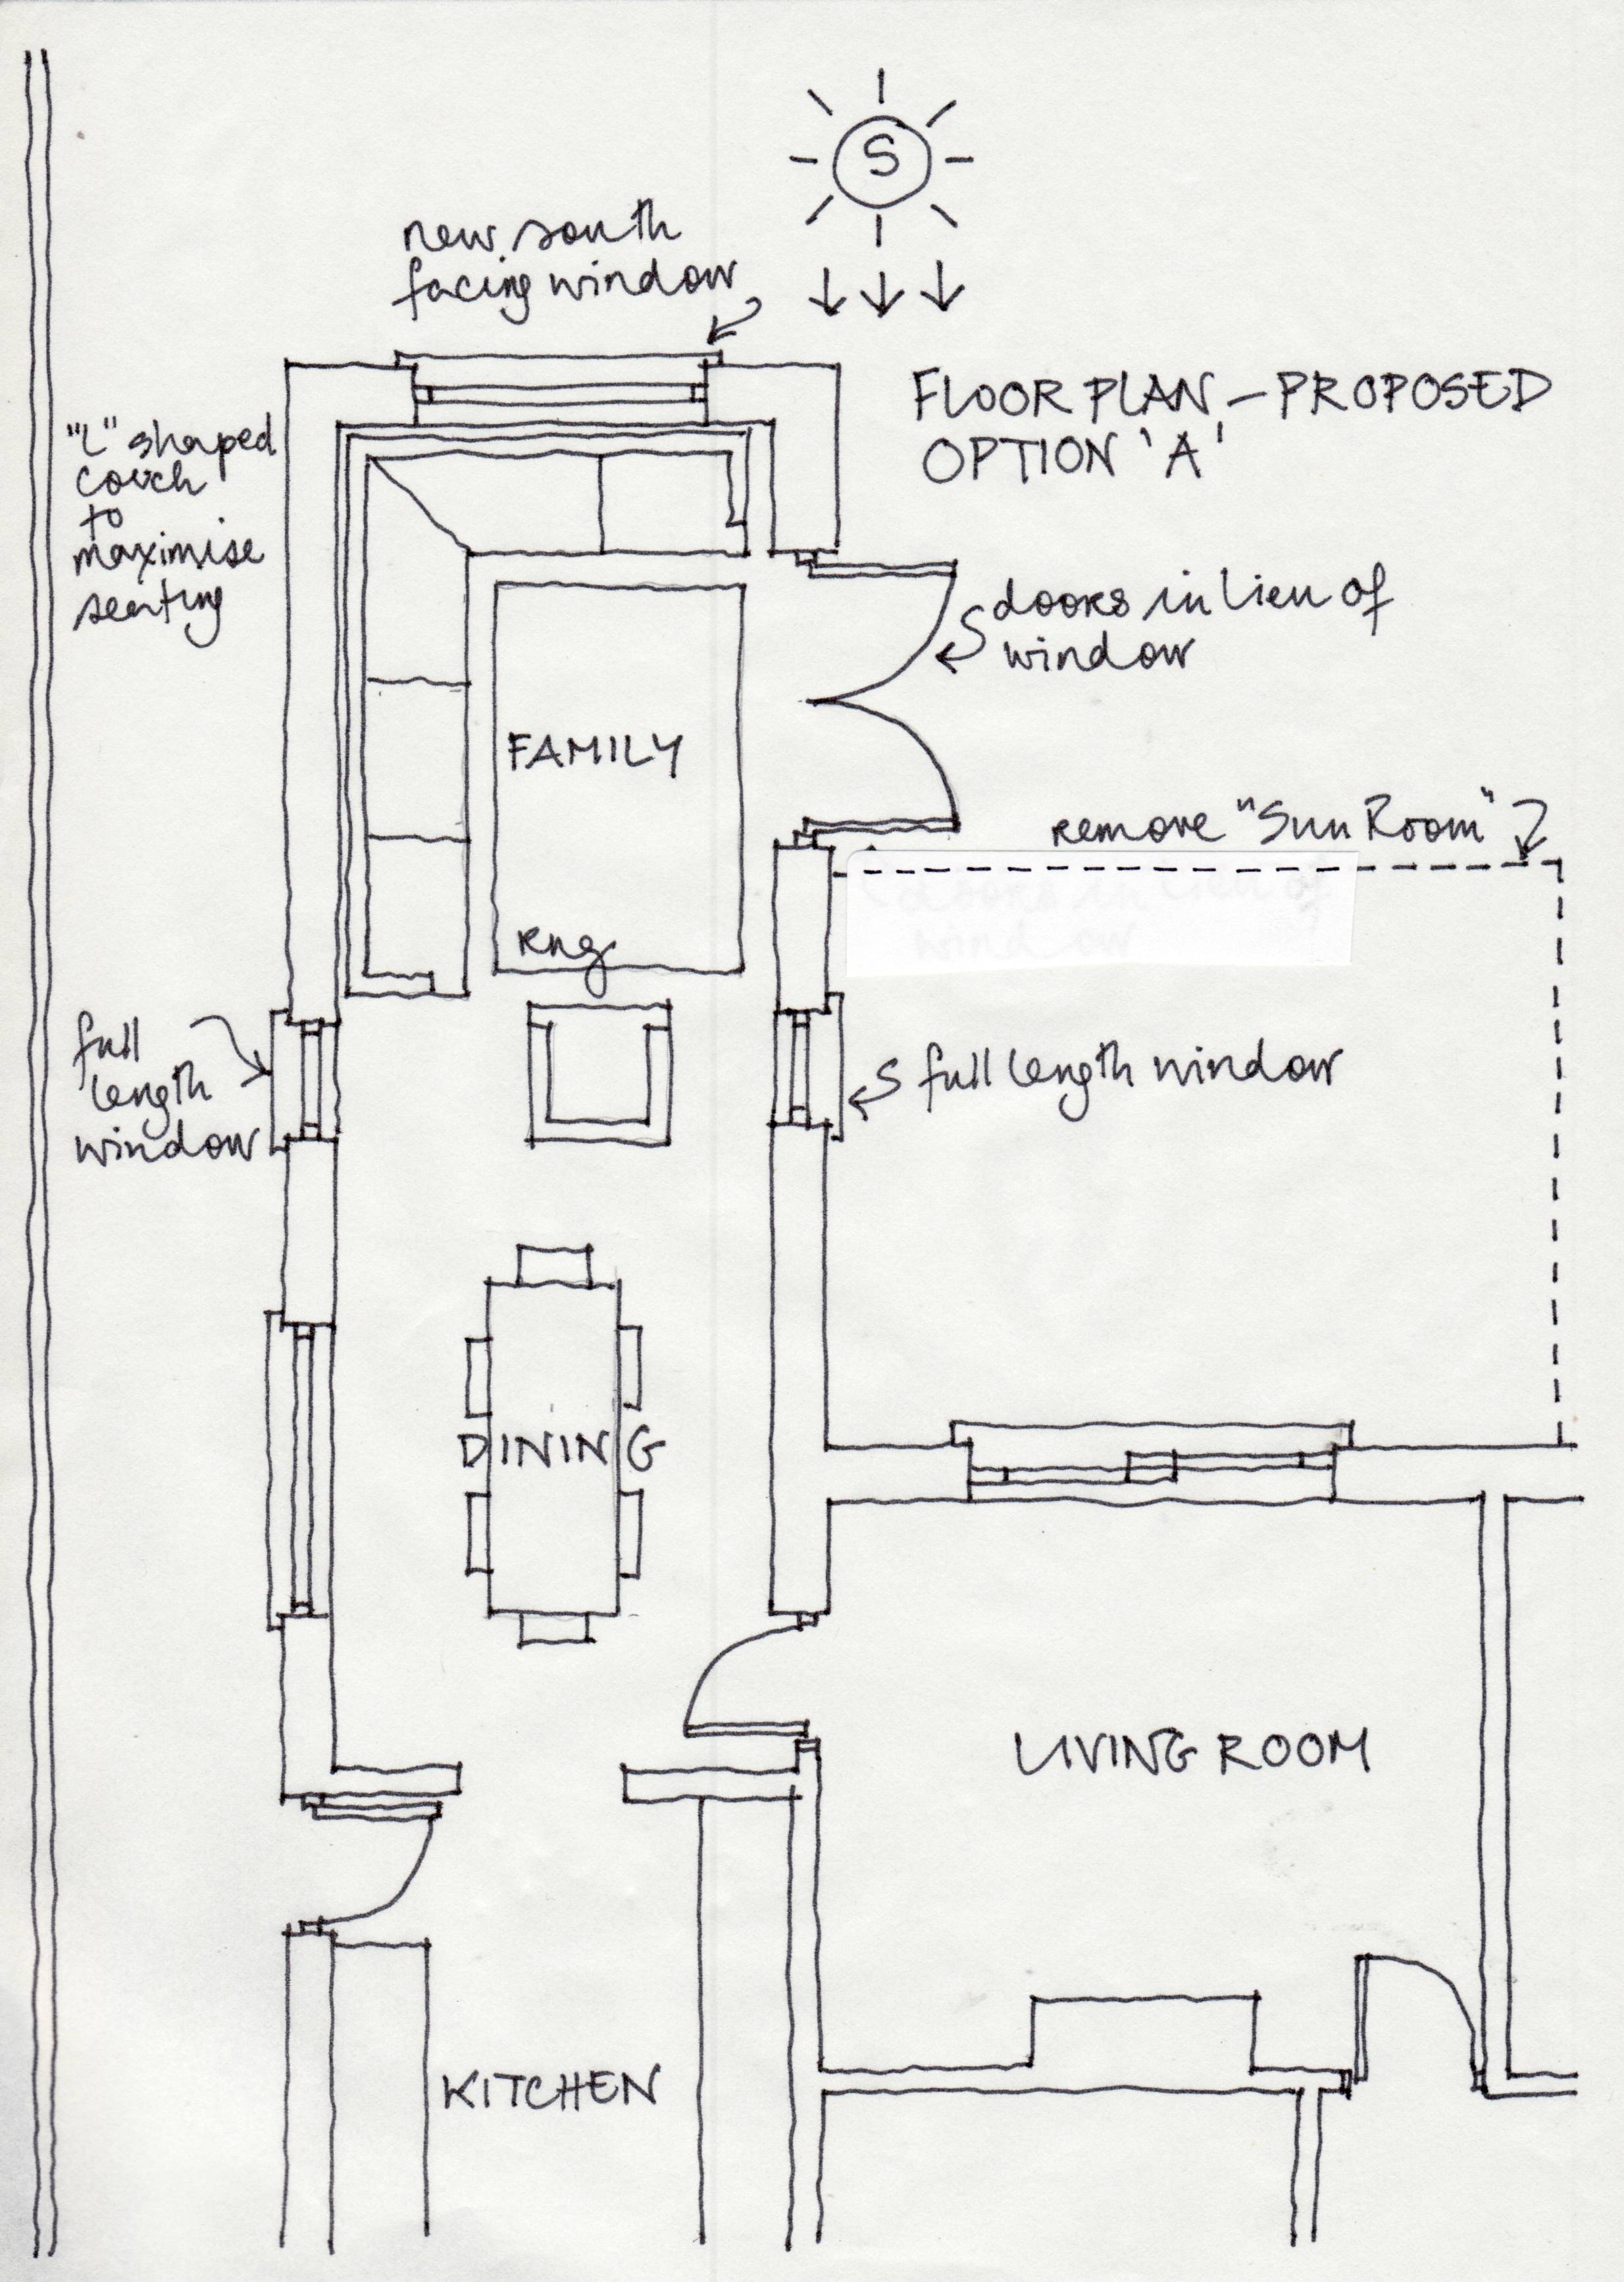 S
new south
facing window
FLOOR PLAN - PROPOSED
OPTION 'A'
"L" shaped
couch
to
maximise
seating
doors in lieu of
window
FAMILY
remove "Sun Room"
doors in lieu of
window
rug
full
length
window
full length window
DINING
LIVING ROOM
KITCHEN